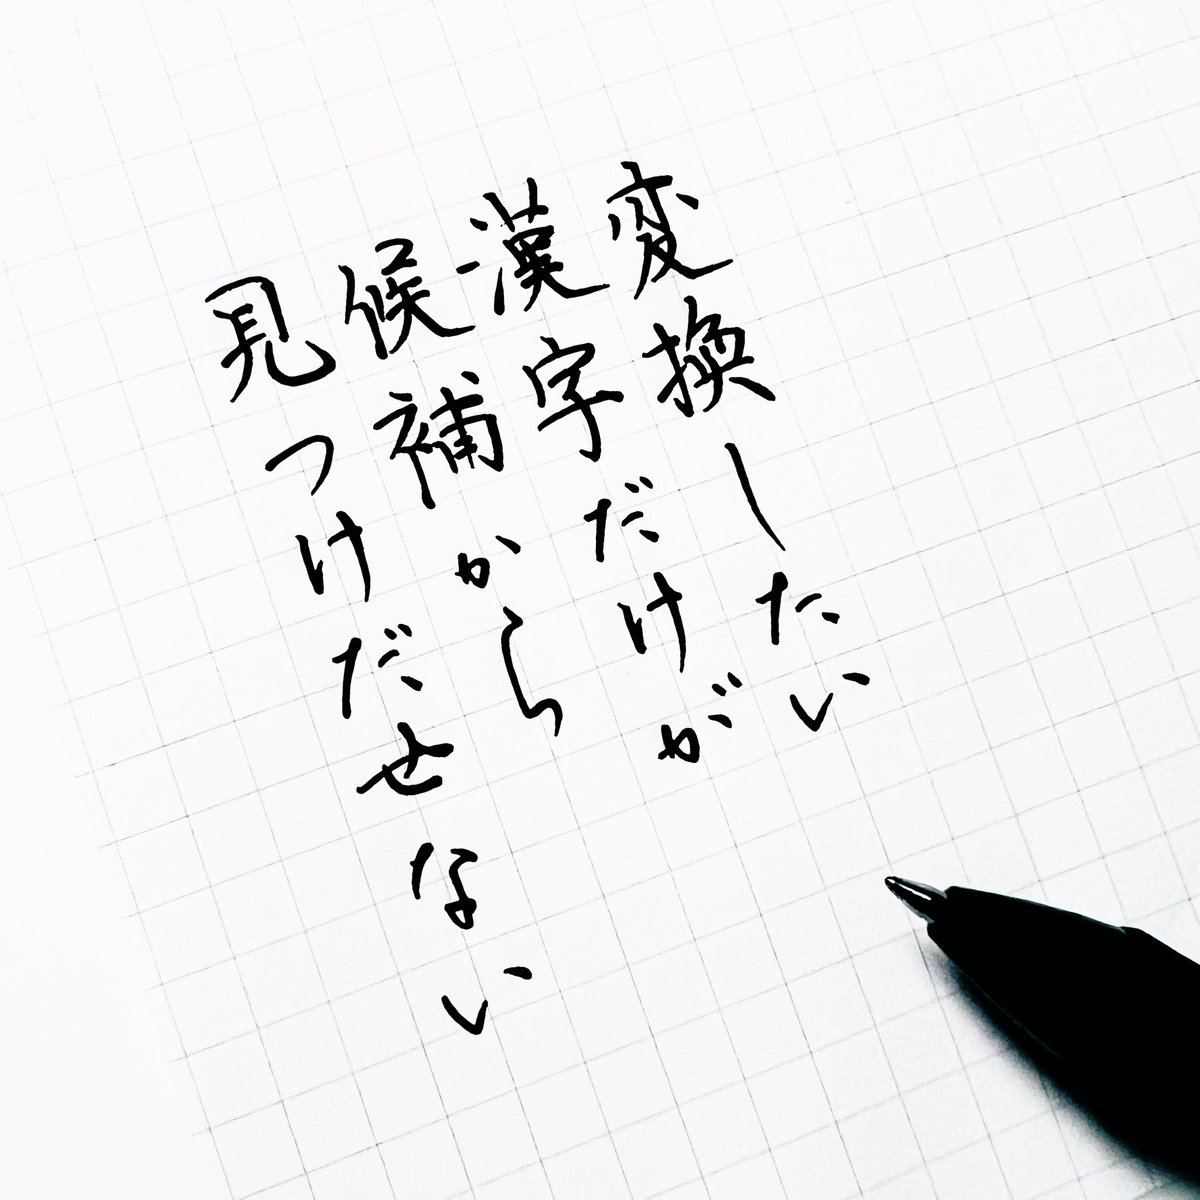 変換したい
漢字だけが
候補から
見つけだせない